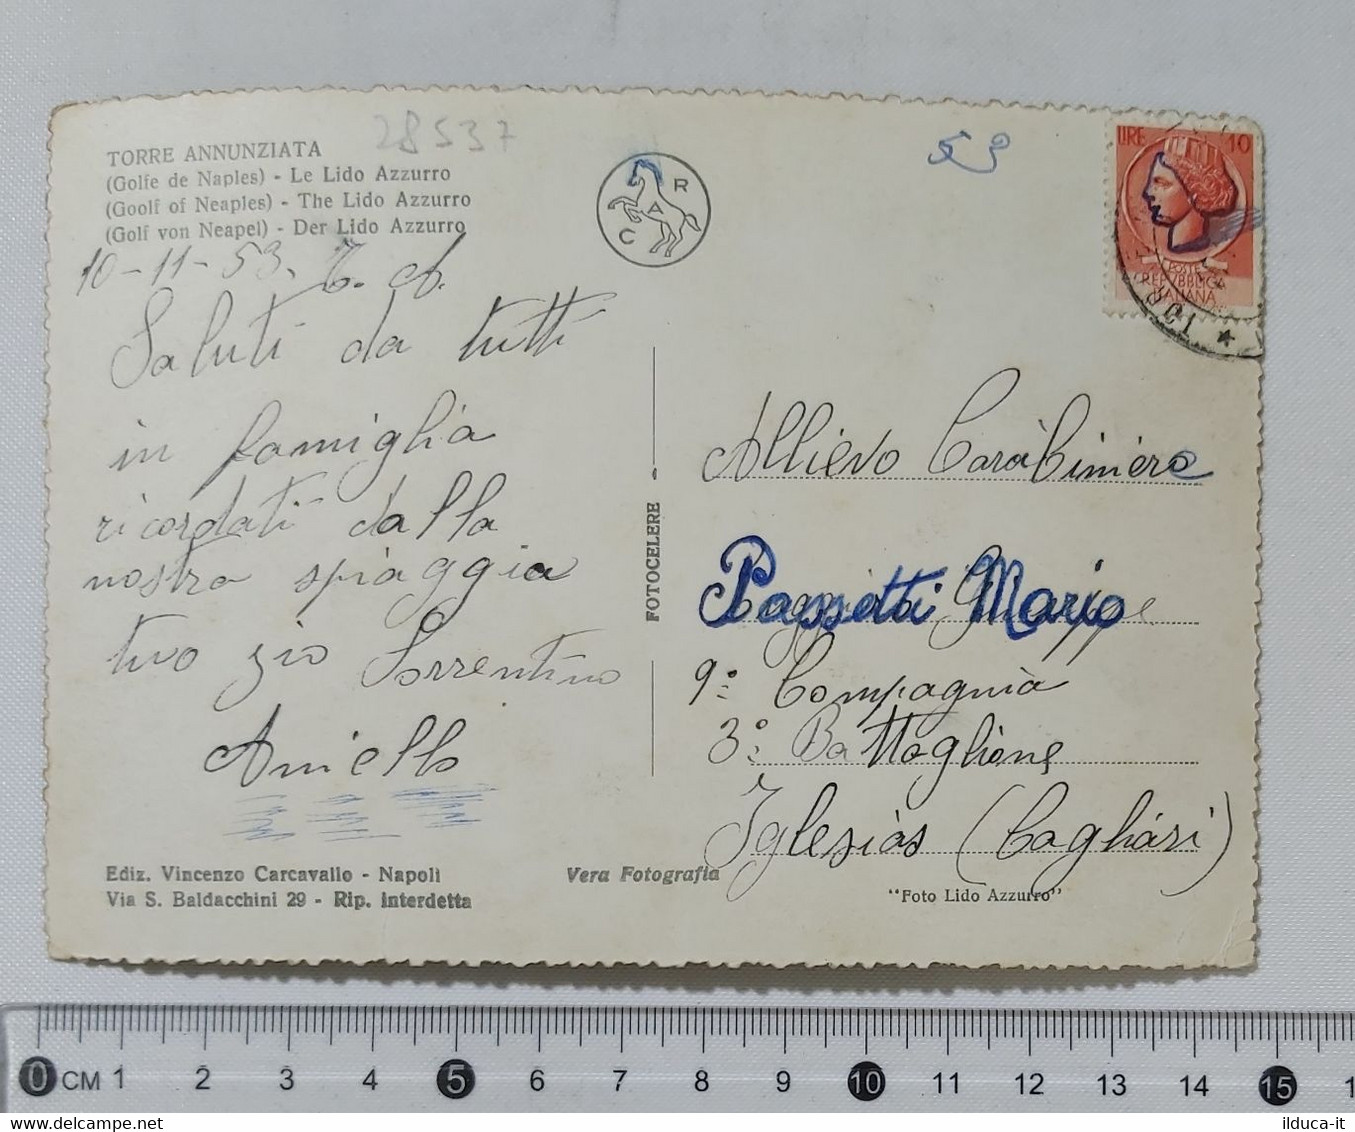 28537
TORRE ANNUNZIATA
(Golfe de Naples) - Le Lido Azzurro
(Goolf of Neaples) - The Lido Azzurro
(Golf von Neapel) - Der Lido Azzurro
10-11-53. T. A.
Saluti da tutti
in famiglia
ricordati dalla
nostra spiaggia
tuo zio Sorrentino
Aniello
Ediz. Vincenzo Carcavallo - Napoli
Via S. Baldacchini 29 - Rip. Interdetta
Vera Fotografia
C A R
FOTOCELERE
53
LIRE 10
POSTE
REPVBBLICA
ITALIANA
TOR
Allievo Carabiniere
Passetti Mario
9° Compagnia
3° Battaglione
Iglesias (Cagliari)
"Foto Lido Azzurro"
0 CM 1 2 3 4 5 6 7 8 9 10 11 12 13 14 15 1
ilduca-it